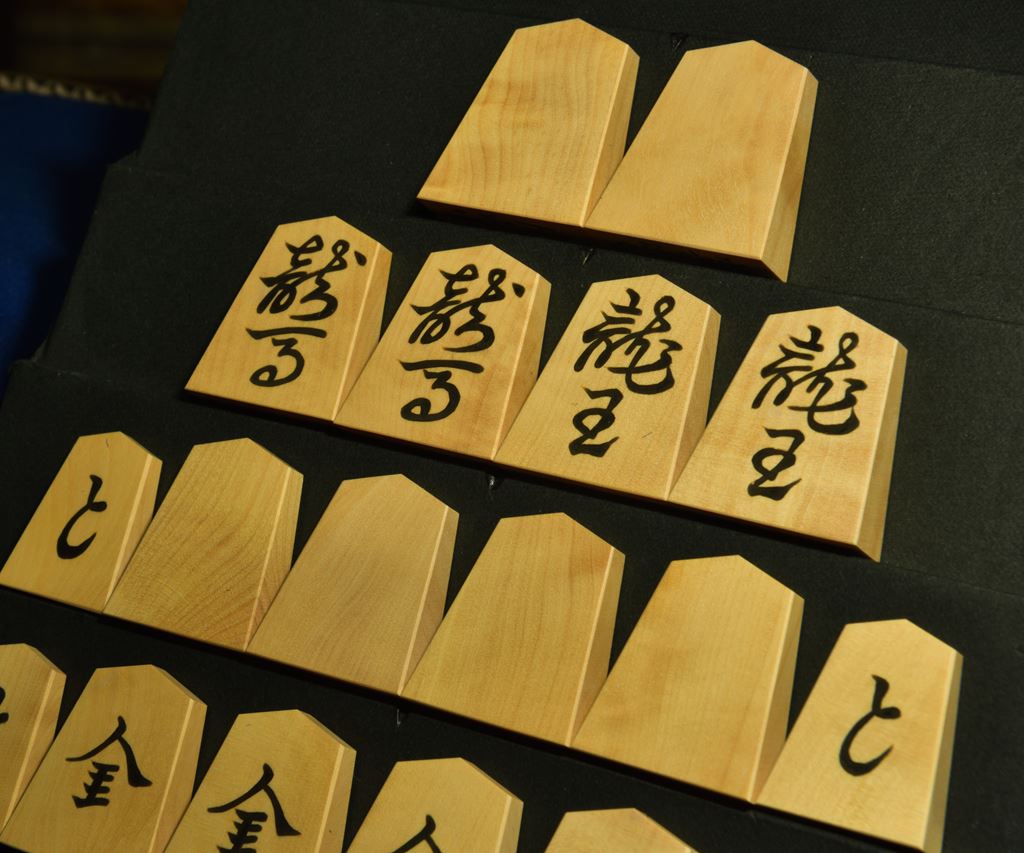 龍馬
龍馬
龍王
龍王
と
と
金
金